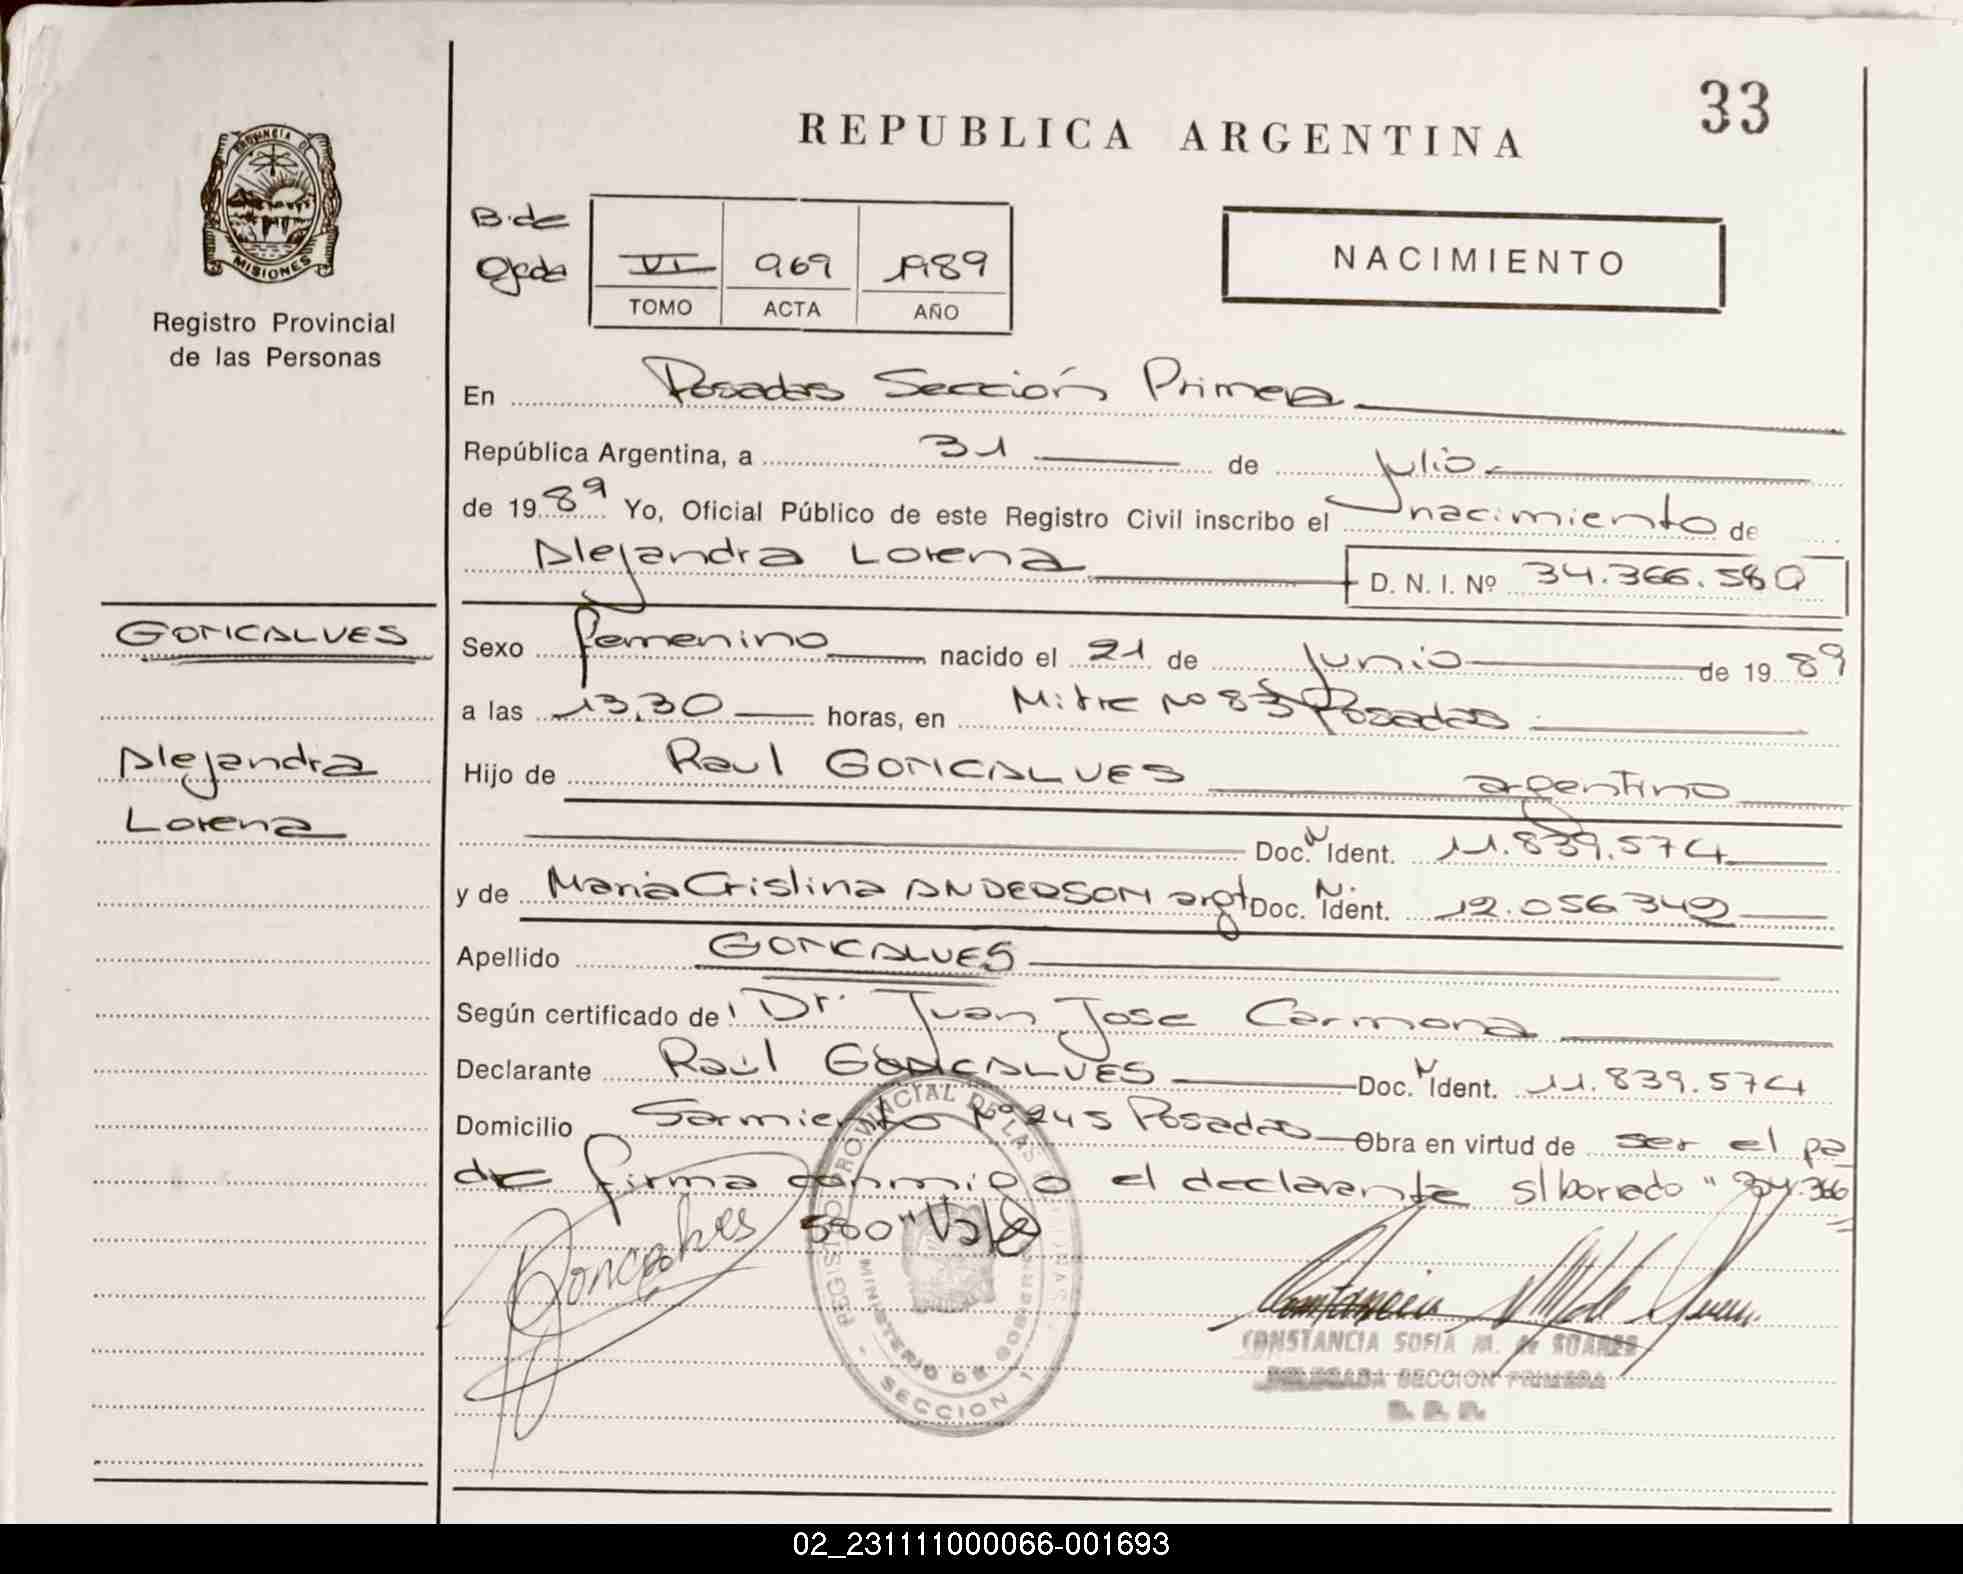 33
REPUBLICA ARGENTINA
PROVINCIA DE
MISIONES
Registro Provincial
de las Personas
B. de
Ojeda
VI 969 1989
TOMO ACTA AÑO
NACIMIENTO
En Posadas Sección Primera
República Argentina, a 31 de Julio
de 1989 Yo, Oficial Público de este Registro Civil inscribo el nacimiento de
Alejandra Lorena D. N. I. Nº 34.366.580
GONCALVES
Alejandra
Lorena
Sexo femenino nacido el 21 de Junio de 1989
a las 13,30 horas, en Mitre Nº 83 Posadas
Hijo de Raul GONCALVES argentino
Doc. N Ident. 11.839.574
y de Maria Cristina ANDERSON argt Doc. N. Ident. 12.056.342
Apellido GONCALVES
Según certificado del Dr. Juan Jose Carmona
Declarante Raúl GONCALVES Doc. N Ident. 11.839.574
Domicilio Sarmiento Nº 245 Posadas Obra en virtud de ser el pa
dre firma conmigo el declarante s/borrado "34.366
580" Vale
Goncalves
REGISTRO PROVINCIAL DE LAS PERSONAS
MINISTERIO DE GOBIERNO
- SECCION 1
CONSTANCIA SOFIA M. de SUARES
DELEGADA SECCION PRIMERA
02_231111000066-001693